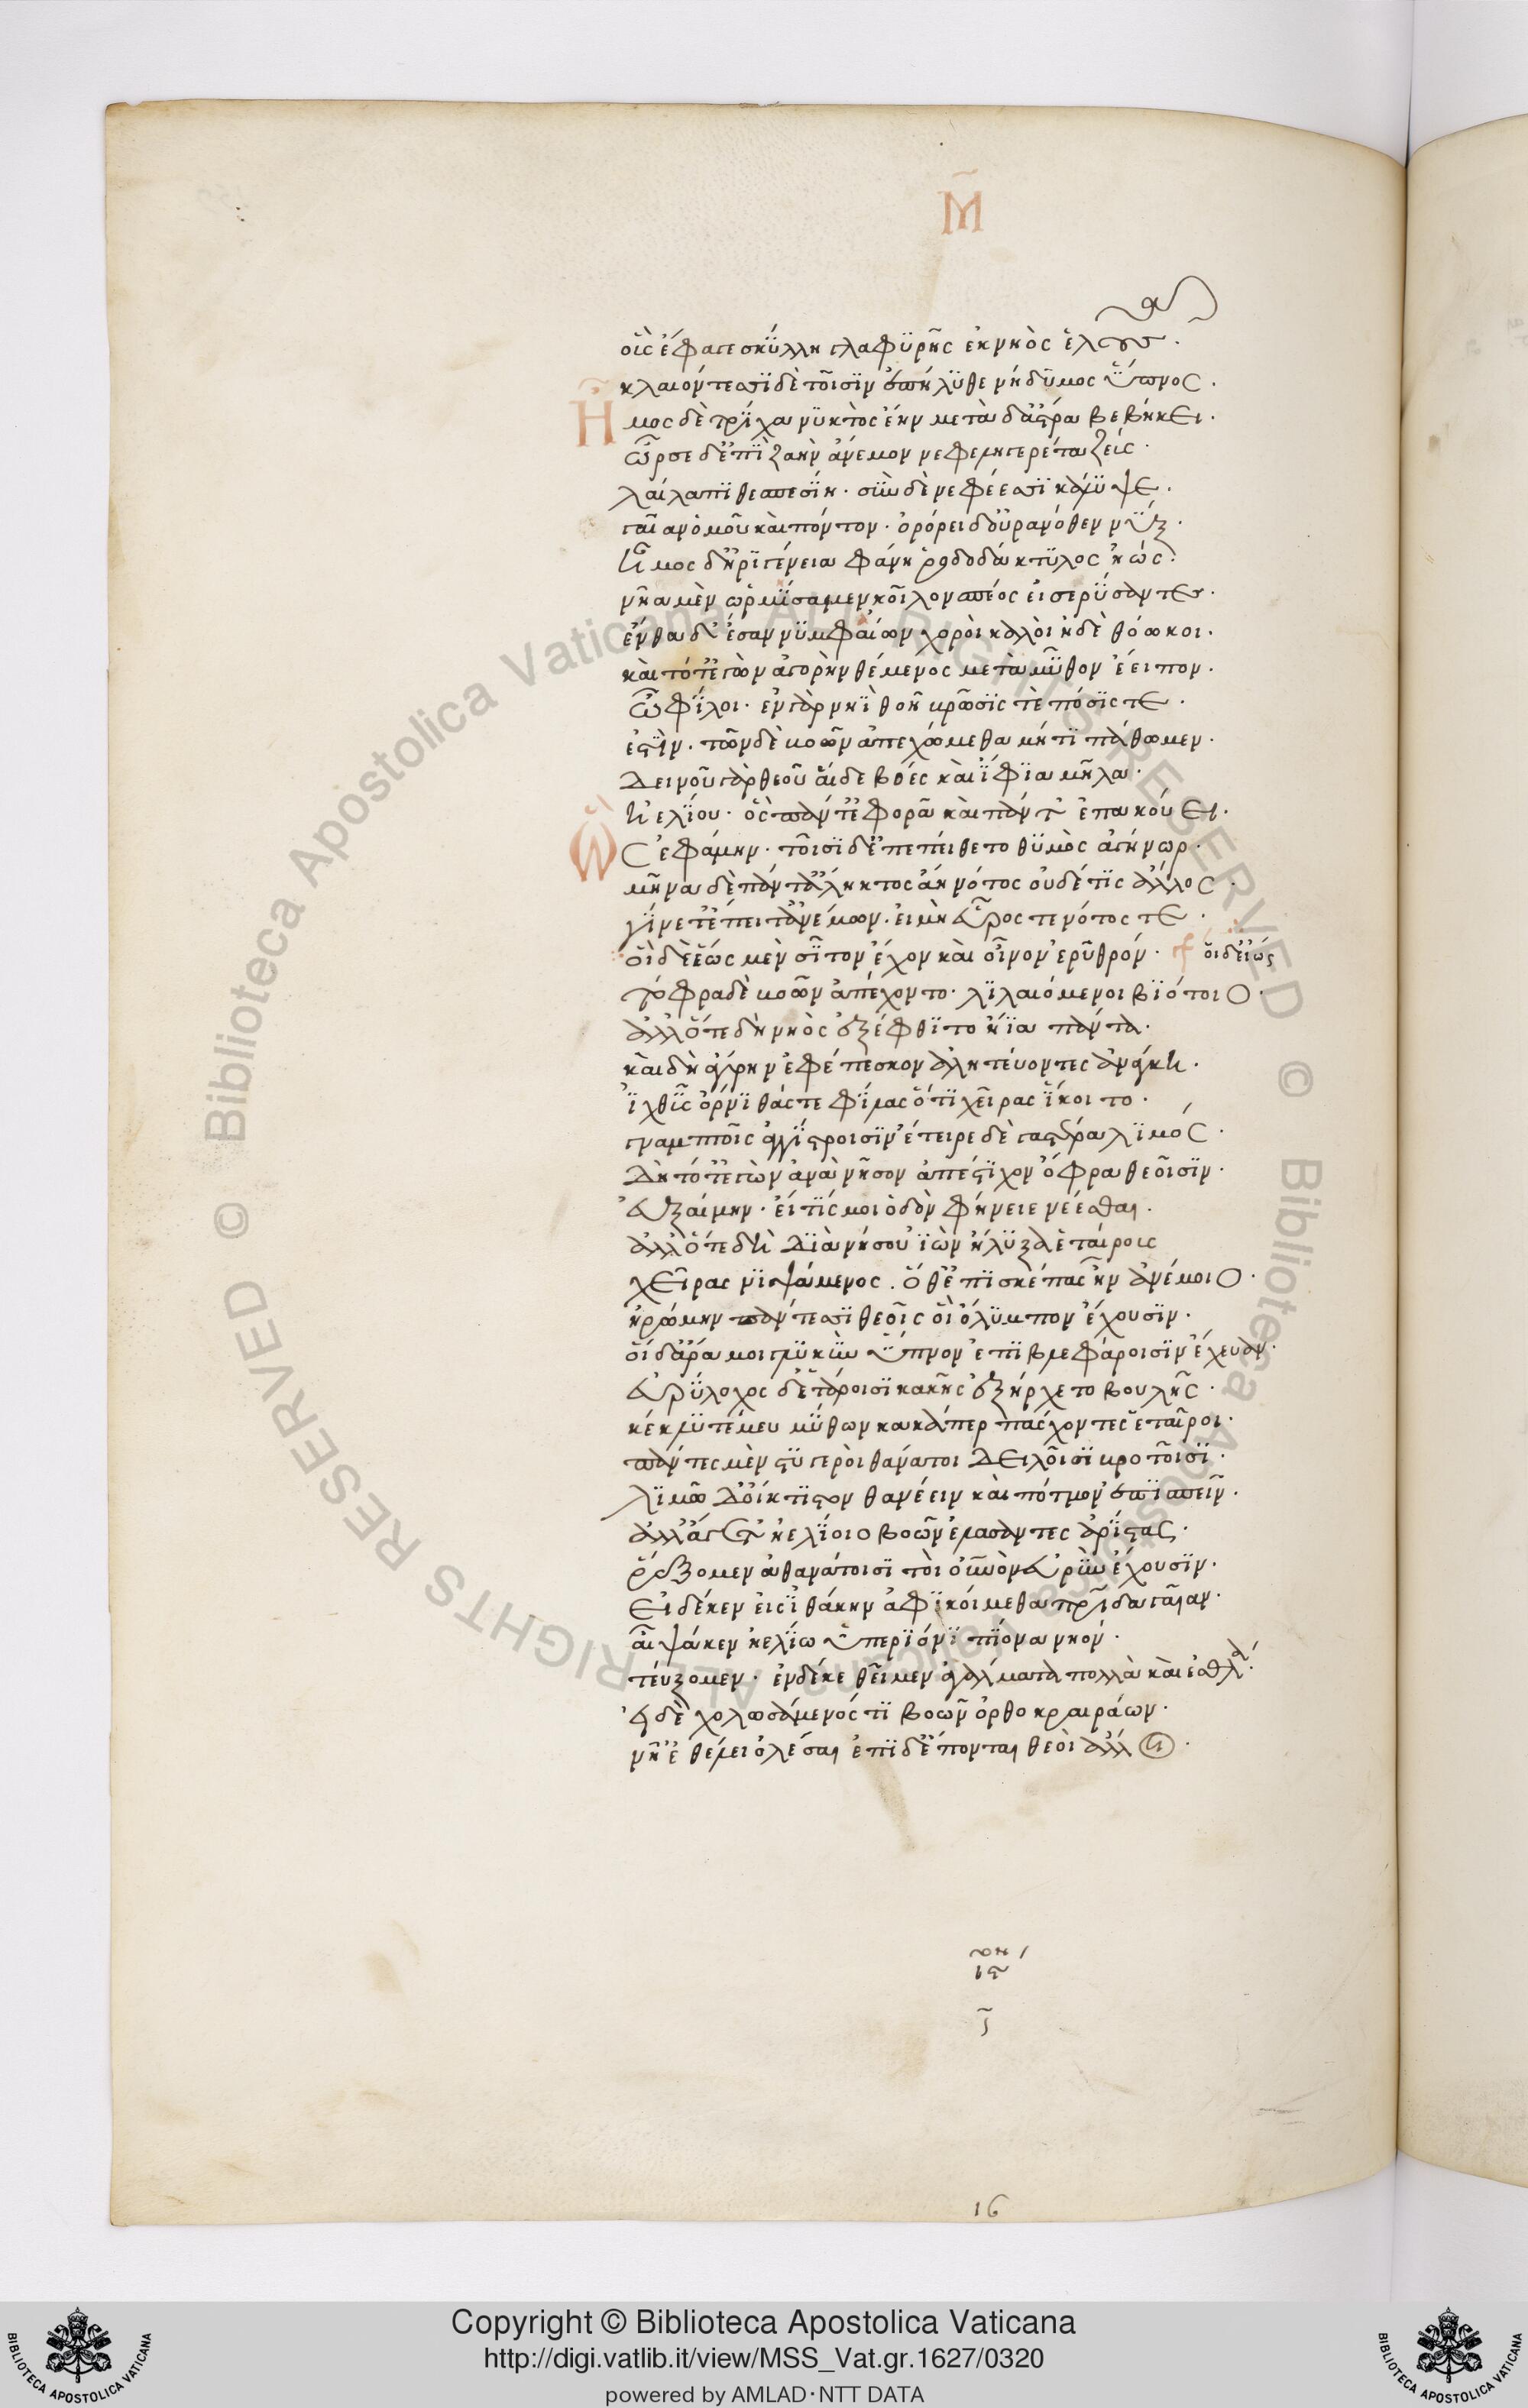 Μ̃
οὓς ἔφαγε σκύλλη γλαφυρῆς ἐκ νηὸς ἑλοῦσα.
κλαιόντεσσι δὲ τοῖσιν ἐπήλυθε νήδυμος ὕπνος.
Ἦμος δὲ τρίχα νυκτὸς ἔην μετὰ δ' ἄστρα βεβήκει.
ὦρσε δ' ἔπι ζαὴν ἄνεμον νεφεληγερέτα ζεύς.
λαίλαπι θεσπεσίη. σὺν δὲ νεφέεσσι κάλυψε.
γαῖαν ὁμοῦ καὶ πόντον. ὀρόρει δ' οὐρανόθεν νύξ.
ἦμος δ' ἠριγένεια φάνη ῥοδοδάκτυλος ἠώς.
νῆα μὲν ὡρμίσαμεν κοῖλον σπέος εἰσερύσαντες.
ἔνθα δ' ἔσαν νυμφαίων χοροὶ καλοὶ ἠδὲ θόωκοι.
καὶ τότ' ἐγὼν ἀγορὴν θέμενος μετὰ μῦθον ἔειπον.
ὦ φίλοι. ἐν γὰρ νηῒ θοῆ βρῶσίς τε πόσις τε.
ἐστὶν. τῶν δὲ βοῶν ἀπεχώμεθα μή τι πάθωμεν.
δεινοῦ γὰρ θεοῦ αἵδε βόες καὶ ἴφια μῆλα.
ἠελίου. ὃς πάντ' ἐφορᾶ καὶ πάντ' ἐπακούει.
Ὣς ἐφάμην. τοῖσι δ' ἐπεπείθετο θυμὸς ἀγήνωρ.
μῆνα δὲ πάντ' ἄληκτος ἄη νότος οὐδέ τις ἄλλος.
γίνετ' ἔπειτ' ἀνέμων. εἰ μὴ εὖρος τε νότος τε.
οἱ δὲ ἕως μὲν σῖτον ἔχον καὶ οἶνον ἐρυθρόν. οἱ δ' εἵως
τόφρα δὲ βοῶν ἀπέχοντο. λιλαιόμενοι βιότοιο.
ἀλλ' ὅτε δὴ νηὸς ἐξέφθιτο ἤϊα πάντα.
καὶ δὴ ἄγρην ἐφέπεσκον ἀλητεύοντες ἀνάγκη.
ἰχθῦς ὄρνιθάς τε φίλας ὅ τι χεῖρας ἵκοιτο.
γναμπτοῖς ἀγκίστροισιν ἔτειρε δὲ γαστέρα λιμός.
δὴ τότ' ἐγὼν ἀνὰ νῆσον ἀπέστιχον ὄφρα θεοῖσιν.
εὐξαίμην. εἴ τίς μοι ὁδὸν φήνειε νέεσθαι.
ἀλλ' ὅτε δὴ διὰ νήσου ἰὼν ἤλυξα ἑταίρους
χεῖρας νιψάμενος. ὅθ' ἐπὶ σκέπας ἦν ἀνέμοιο.
ἠρώμην πάντεσσι θεοῖς οἳ ὄλυμπον ἔχουσιν.
οἱ δ' ἄρα μοι γλυκὺν ὕπνον ἐπὶ βλεφάροισιν ἔχευαν.
εὐρύλοχος δ' ἑτάροισι κακῆς ἐξήρχετο βουλῆς.
κέκλυτέ μευ μύθων κακά περ πάσχοντες ἑταῖροι.
πάντες μὲν στυγεροὶ θάνατοι δειλοῖσι βροτοῖσι.
λιμῶ δ' οἴκτιστον θανέειν καὶ πότμον ἐπισπεῖν.
ἀλλ' ἄγετ' ἠελίοιο βοῶν ἐλάσαντες ἀρίστας.
ῥέξομεν ἀθανάτοισι τοὶ οὐρανὸν εὐρὺν ἔχουσιν.
εἰ δέ κεν εἰς ἰθάκην ἀφικοίμεθα πατρίδα γαῖαν.
αἶψά κεν ἠελίω ὑπερίονι πίονα νηόν.
τεύξομεν. ἐν δέ κε θεῖμεν ἀγάλματα πολλὰ καὶ ἐσθλά.
εἰ δὲ χολωσάμενός τι βοῶν ὀρθοκραιράων.
νῆ' ἐθέλει ὀλέσαι ἐπὶ δ' ἕπονται θεοὶ ἄλλοι.
16
Copyright © Biblioteca Apostolica Vaticana
http://digi.vatlib.it/view/MSS_Vat.gr.1627/0320
powered by AMLAD·NTT DATA